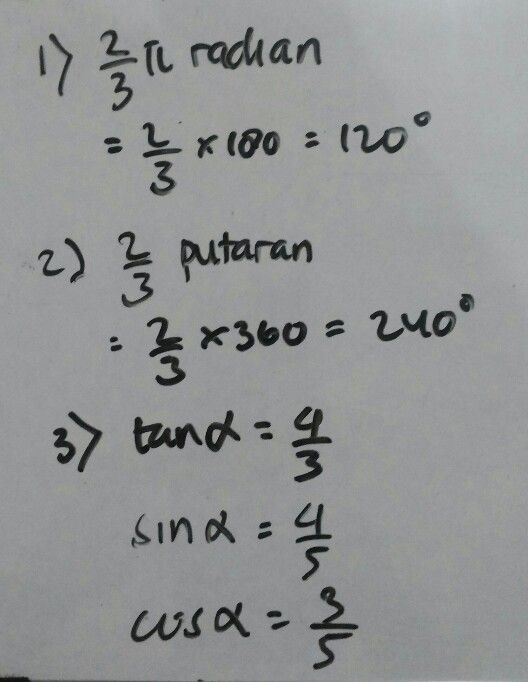 1) 2/3 π radian
= 2/3 × 180 = 120°
2) 2/3 putaran
= 2/3 × 360 = 240°
3) tan α = 4/3
sin α = 4/5
cos α = 3/5